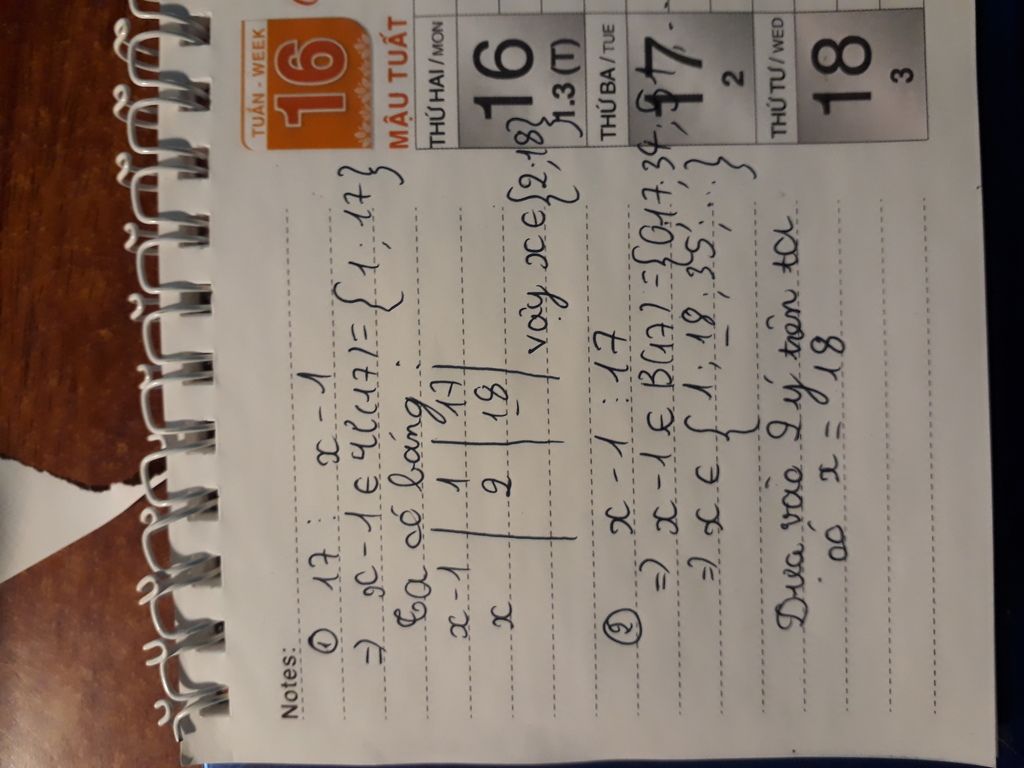 Notes:
① 17 ⋮ x - 1
=> x - 1 ∈ Ư(17) = { 1 ; 17 }
Ta có bảng :
x - 1 | 1 | 17 |
x | 2 | 18 |
vậy x ∈ {2; 18}
② x - 1 ⋮ 17
=> x - 1 ∈ B(17) = {0; 17; 34; 51; ...
=> x ∈ { 1 ; 18 ; 35 ; ... }
Dựa vào 2 ý trên ta
có x = 18
TUẦN - WEEK
16
MẬU TUẤT
THỨ HAI / MON
16
1.3 (T)
THỨ BA / TUE
17
2
THỨ TƯ / WED
18
3